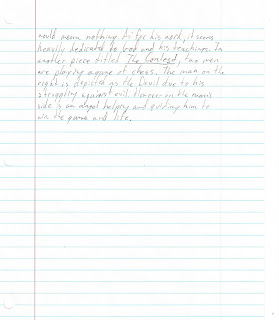 would mean nothing. As for his work, it seems
heavily dedicated to God and his teachings. In
another piece titled The Contest, two men
are playing a game of chess. The man on the
right is depicted as the Devil due to his
struggling against evil. However on the man's
side is an angel helping and guiding him to
win the game and life.